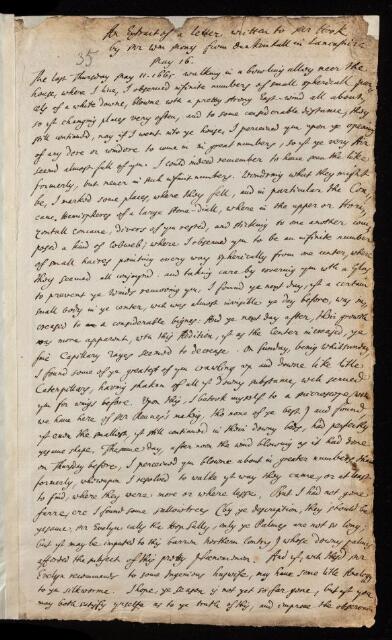 An Extract of a letter, written to Mr Cook
by Mr Wm from Dunkenhall in Lancashire
May 16.
35
The last Thursday May 11. 1665 walking in a bowling alley neer the
house, where I live, I observed infinite numbers of small spherical par-
cels of a white downe, blowne wth a pretty strong East-wind all about,
so yt changing places very often, and to some considerable distance, they
still continued, nay if I went into ye house, I perceived ym upon ye opening
of any dore or windore to come in in great numbers, so yt ye very Air
seemd almost full of ym. I could indeed remember to have seen the like
formerly, but never in such infinit numbers. Wondering what they might
be, I marked some places, where they fell, and in particular the Con-
cave Hemisphere of a large stone-Diall, where in the upper or Hori-
zontall concave, divers of ym rested, and sticking to one another com-
posed a kind of Cobweb; where I observed ym to be an infinite number
of small haires pointing every way spherically from one center, where
they seemed all conjoynd: and taking care by covering ym wth a Glass
to prevent ye Winds removing ym, I found ye next day, yt a certain
small body in ye center, wch was almost invisible ye day before, was in-
creased to a considerable bignes. And ye next day after, their growth
was more apparent, wth this Addition, yt as the Center increased, ye
fine Capillary rayes seemed to decrease. On Sunday, being whitsunday
I found some of ye greatest of ym crawling up and downe like little
Caterpillars, having shaken of all yt downy substance, wch served
ym for wings before. Upon this, I betook myself to a microscope, wch
we have here of Mr making, the none of ye best, and found
yt even the smallest, yt still continued in their downy beds, had perfectly
ye same shape. The same day, after noon the wind blowing as it had done
on Thursday before, I perceived ym blowne about in greater numbers than
formerly, whereupon I resolved to walke yt way they came, or at least
to find, where they were more or where lesse. But I had not gone
farre, ere I found some sallowtrees (by ye description, they should be
ye same Mr Evelyn calls the hop Sally, only ye Palmes are not so long,
but yt may be imputed to this barren Northern Contry) whose downy palmes
afforded the subject of this pretty phaenomenon. And yt, wch this Mr
Evelyn recommends to some Ingenious huswife, may have some litle Analogy
to ye silkworme. I hope, ye season is not yet so far gone, but yt you
may both satisfy yrselfe as to ye truth of this, and improve the observation